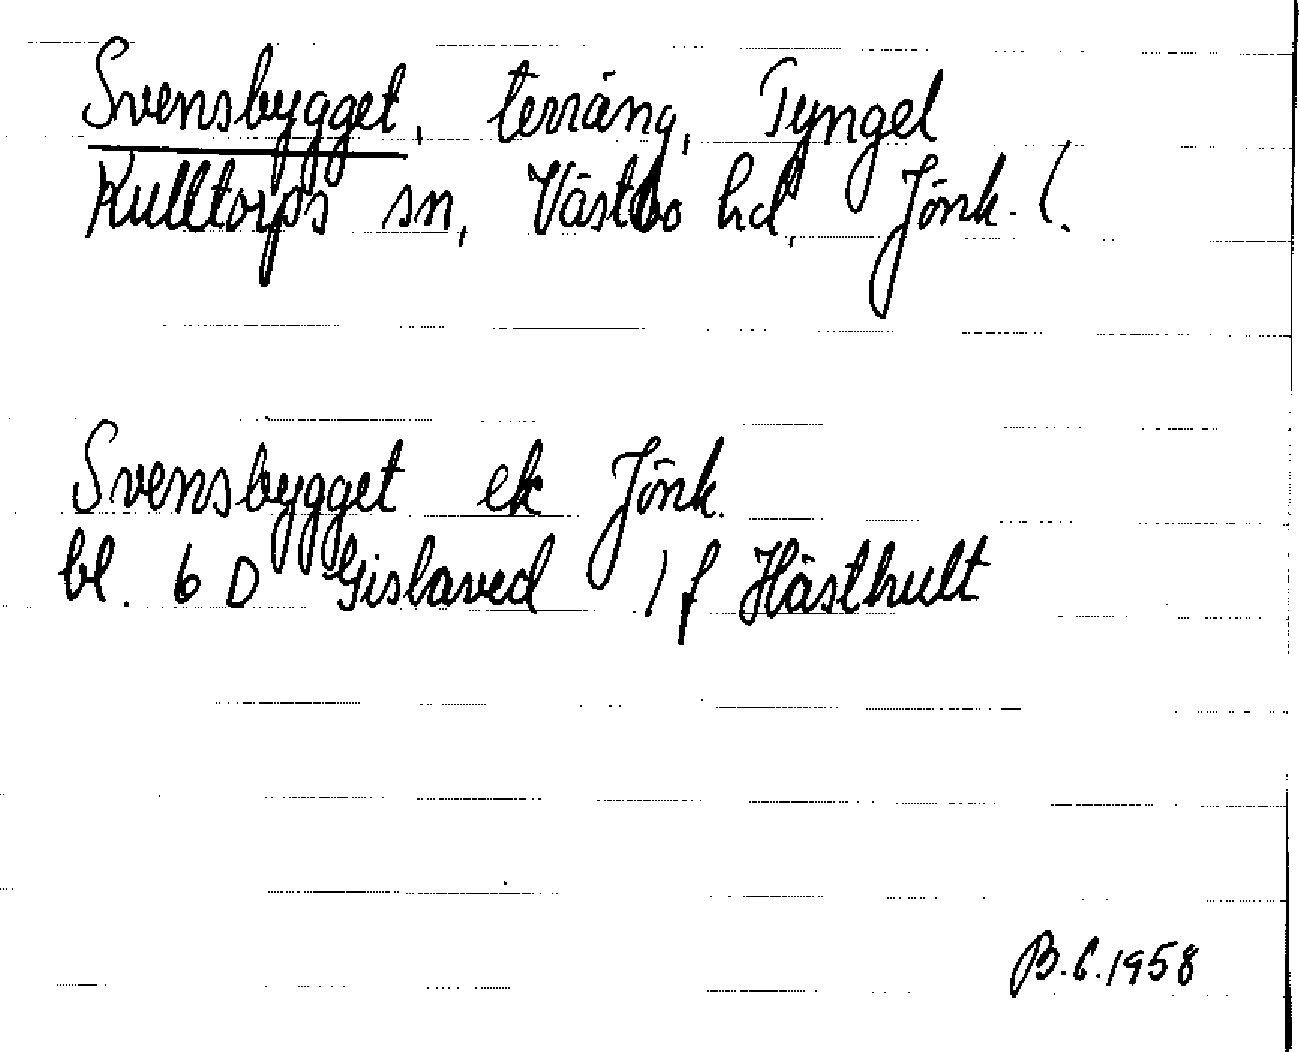 Svensbygget, terräng, Tyngel
Kulltorps sn, Västbo hd, Jönk. l.
Svensbygget ek Jönk.
bl. 6 D Gislaved 1 f Hästhult
B.L.1958